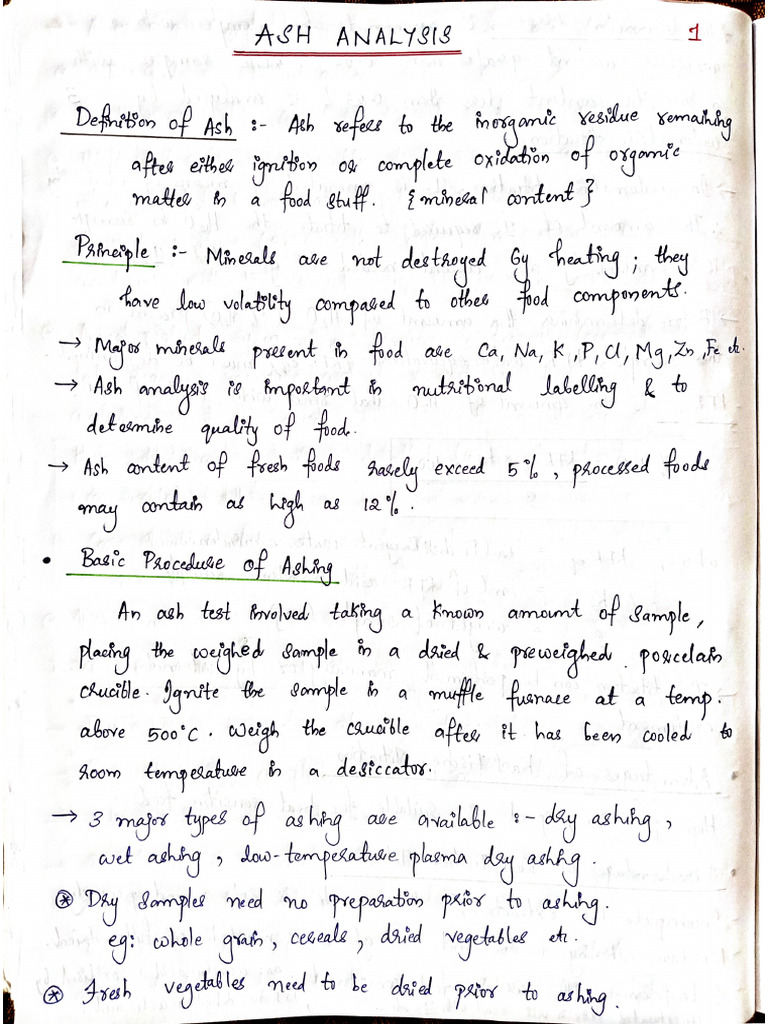 ASH ANALYSIS
1
Definition of Ash :- Ash refers to the inorganic residue remaining
after either ignition or complete oxidation of organic
matter in a food stuff. {mineral content}
Principle :- Minerals are not destroyed by heating ; they
have low volatility compared to other food components.
→ Major minerals present in food are Ca, Na, K, P, Cl, Mg, Zn, Fe etc.
→ Ash analysis is important in nutritional labelling & to
determine quality of food.
→ Ash content of fresh foods rarely exceed 5%, processed foods
may contain as high as 12%.
• Basic Procedure of Ashing
An ash test involved taking a known amount of sample,
placing the weighed sample in a dried & preweighed porcelain
crucible. Ignite the sample in a muffle furnace at a temp.
above 500°C. Weigh the crucible after it has been cooled to
room temperature in a desiccator.
→ 3 major types of ashing are available :- dry ashing,
wet ashing, low-temperature plasma dry ashing.
⊛ Dry samples need no preparation prior to ashing.
eg: whole grain, cereals, dried vegetables etc.
⊛ Fresh vegetables need to be dried prior to ashing.